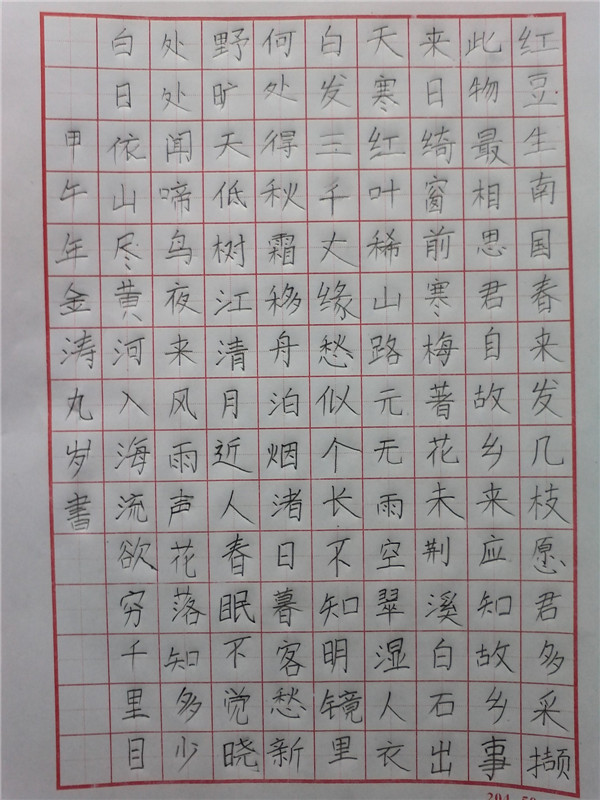 红豆生南国春来发几枝愿君多采撷
此物最相思君自故乡来应知故乡事
来日绮窗前寒梅著花未荆溪白石出
天寒红叶稀山路元无雨空翠湿人衣
白发三千丈缘愁似个长不知明镜里
何处得秋霜移舟泊烟渚日暮客愁新
野旷天低树江清月近人春眠不觉晓
处处闻啼鸟夜来风雨声花落知多少
白日依山尽黄河入海流欲穷千里目
甲午年金涛丸岁書